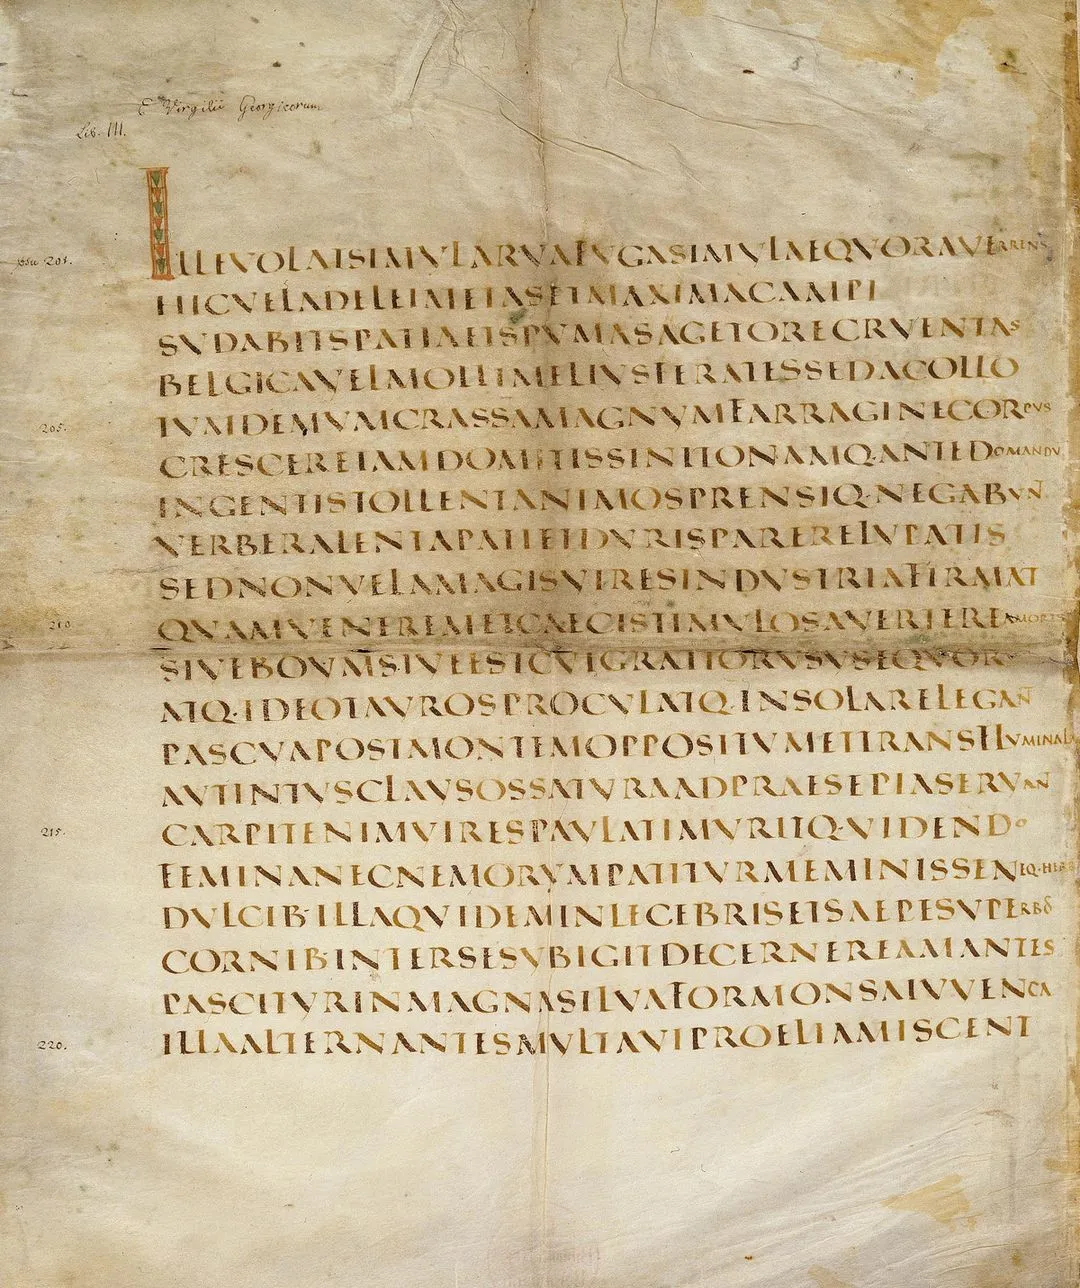 E Virgilii Georgicorum
Lib. III.
ILLEVOLATSIMVLARVAFVGASIMVLAEQVORAVERRENS
201.
HICVELADELEIMETASETMAXIMACAMPI
SVDABITSPATIAETSPVMASAGETORECRVENTAS
BELGICAVELMOLLIMELIVSFERATESSEDACOLLO
TVMDEMVMCRASSAMAGNVMFARRAGINECORPVS
205.
CRESCEREIAMDOMITISSINITONAMQ·ANTEDOMANDV
INGENTISTOLLENTANIMOSPRENSIQ·NEGABVN
VERBERALENTAPATIETDVRISPARERELVPATIS
SEDNONVLLAMAGISVIRESINDVSTRIAFIRMAT
QVAMVENEREMETCAECISTIMVLOSAVERTEREAMORIS
210.
SIVEBOVMSIVEESTCVIGRATIORVSVSEQVOR
ATQ·IDEOTAVROSPROCVLATQ·INSOLARELEGAN
PASCVAPOSTMONTEMOPPOSITVMETTRANSFLVMINALA
AVTINTVSCLAVSOSSATVRAADPRAESEPIASERVAN
CARPITENIMVIRESPAVLATIMVRITQ·VIDENDO
215.
FEMINANECNEMORVMPATITVRMEMINISSENEQ·HERB
DVLCIB·ILLAQVIDEMINLECEBRISETSAEPESVPERBOS
CORNIB·INTERSESVBIGITDECERNEREAMANTES
PASCITVRINMAGNASILVAFORMONSAIVVENCA
ILLAALTERNANTESMVLTAVIPROELIAMISCENT
220.